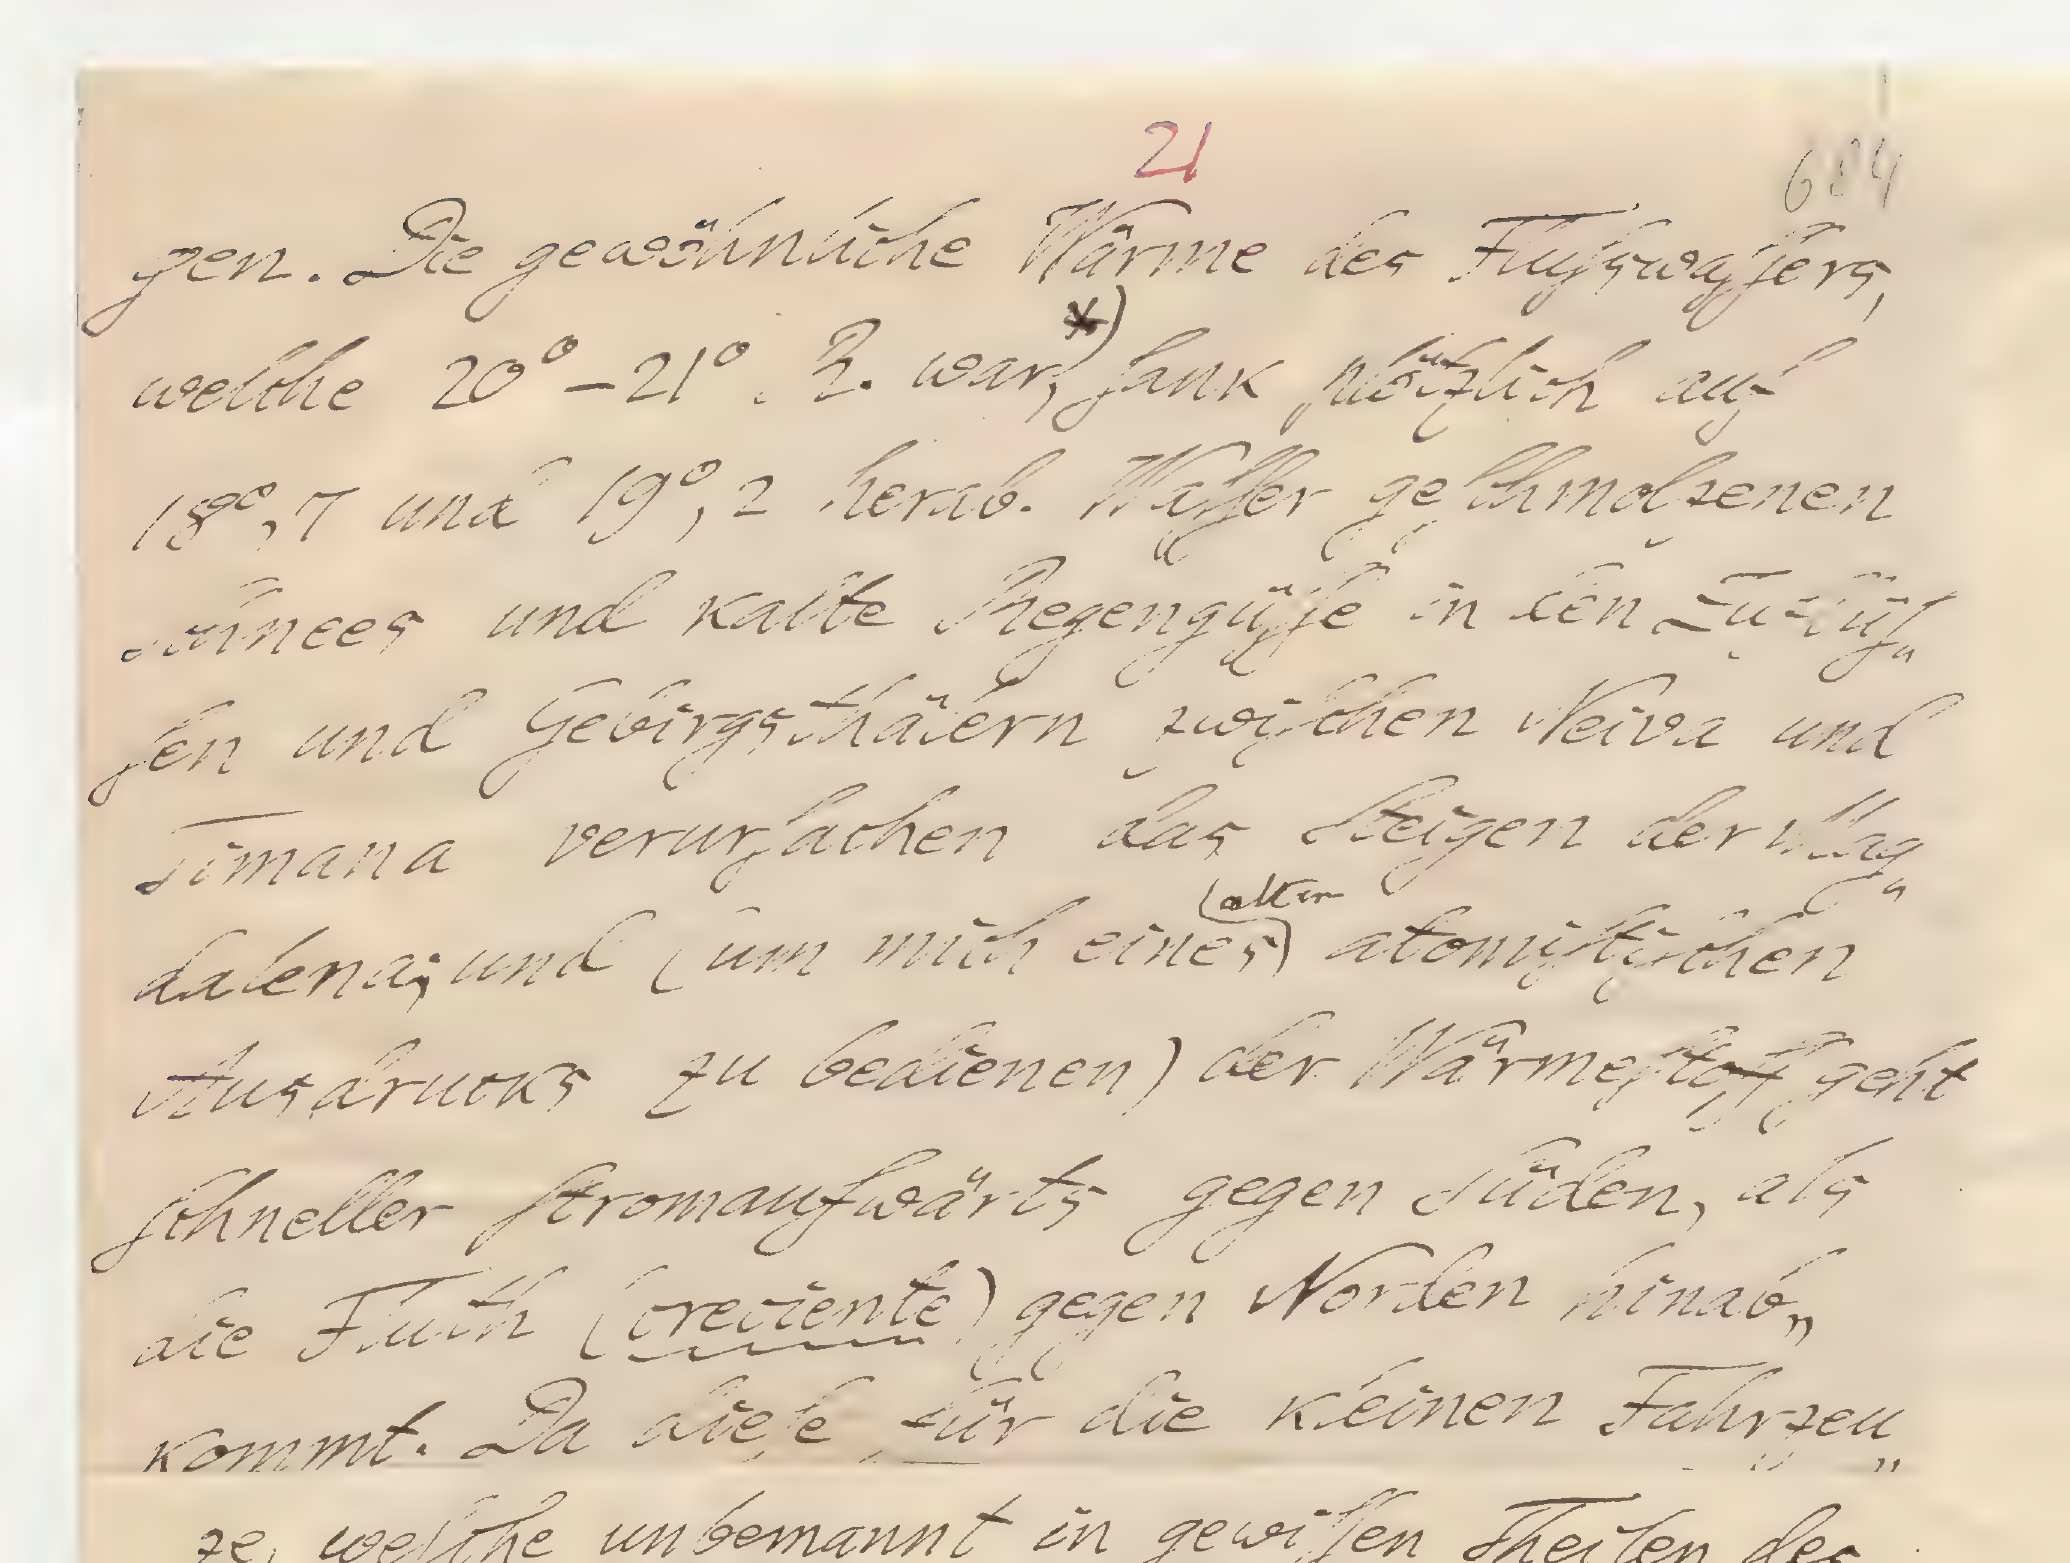 21
684
gen. Die gewöhnliche Wärme des Flußwassers,
welche 20° – 21° R. war,*) sank plötzlich auf
18°,7 und 19°,2 herab. Wasser geschmolzenen
Schnees und kalte Regengüsse in den Zuflüs„
sen und Gebirgsthälern zwischen Neiva und
Timana verursachen das Steigen der Mag„
dalena; und (um mich eines (alten) atomistischen
Ausdrucks zu bedienen) der Wärmestoff geht
schneller stromaufwärts gegen Süden, als
die Fluth (creciente) gegen Norden hinab„
kommt. Da diese für die kleinen Fahrzeu„
ge, welche unbemannt in gewissen Theilen des